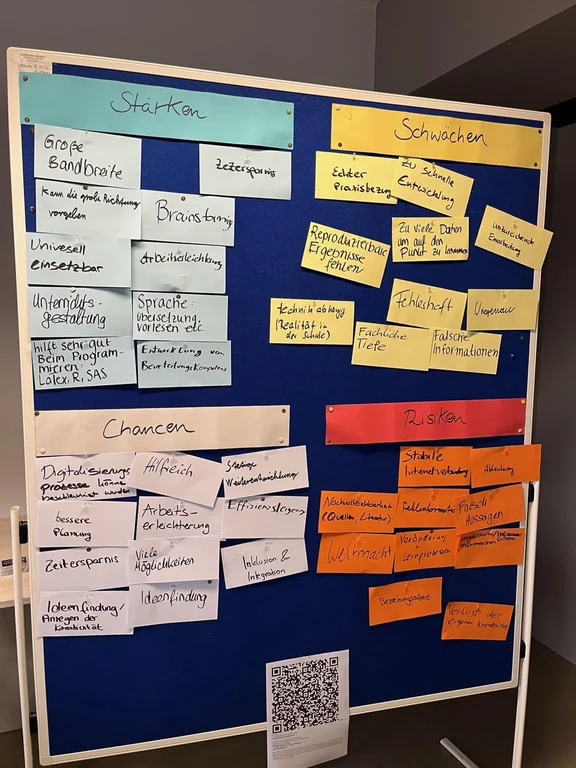 Stärken
Große
Bandbreite
Zeitersparnis
Kann die große Richtung
vorgeben
Brainstorming
Univesell
einsetzbar
Arbeitserleichterung
Unterrichts-
gestaltung
Sprache:
übersetzung,
vorlesen etc.
hilft sehr gut
Beim Program-
mieren:
Latex, R, SAS
Entwicklung von
Beurteilungskompetenz
Schwächen
Echter
Praxisbezug
Zu schnelle
Entwicklung
Reproduzierbare
Ergebnisse
fehlen
Zu viele Daten
um auf den
Punkt zu kommen
Unzureichende
technik abhängig
(Realität in
der Schule)
Fehlerhaft
Ungenau
Fachliche
Tiefe
Falsche
Informationen
Chancen
Digitalisierungs
prozesse können
beschleunigt werden
Hilfreich
Stetige
Weiterentwicklung
bessere
Planung
Arbeits-
erleichterung
Effizienzsteigerung
Zeitersparnis
Viele
Möglichkeiten
Inklusion &
Integration
Ideenfindung/
Anregen der
Kreativität
Ideenfindung
Risiken
Stabile
Internetverbindung
Ablenkung
Nachvollziehbarkeit
(Quellen, Literatur)
Fehlinformation
Falsch
Aussagen
Weltmacht
Veränderung
Lernprozesse
Beziehungsarbeit
Verlust der
eigenen Kreativität